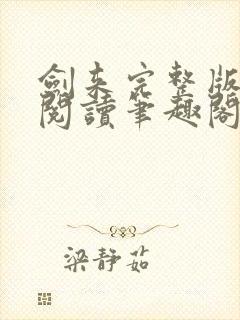 劍来完整版
閱讀筆趣閣
梁靜茹